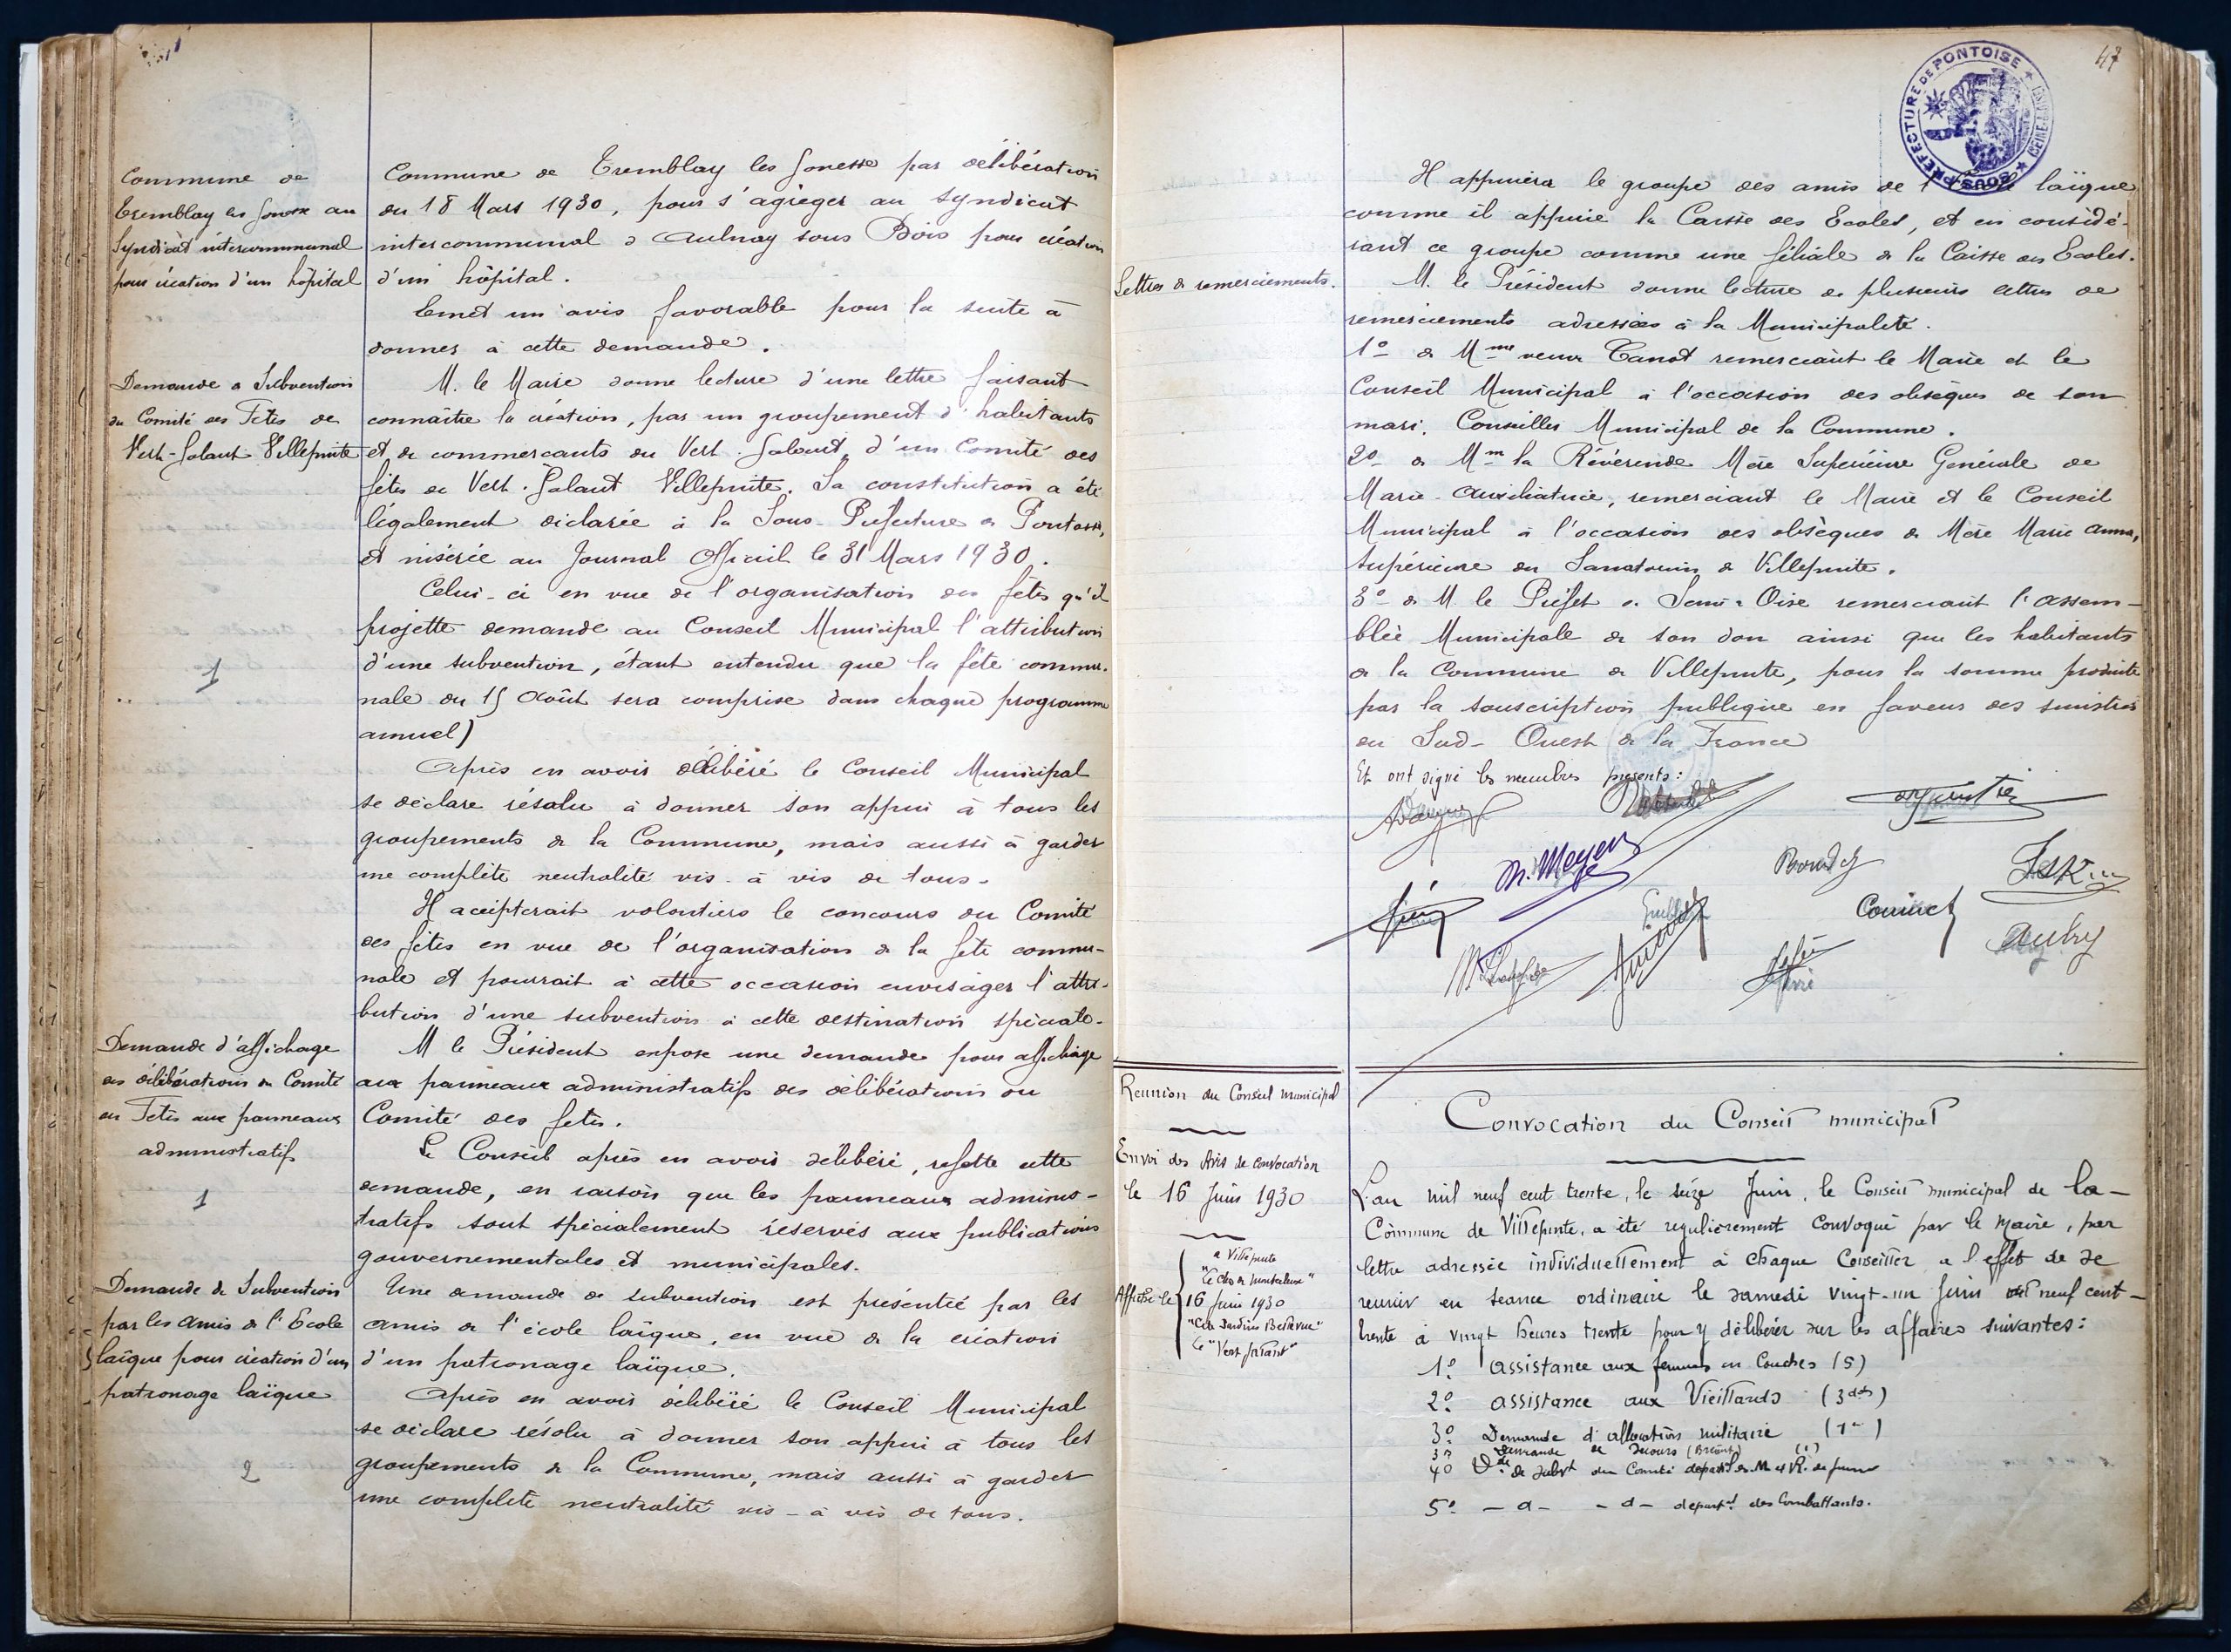 Commune de
Tremblay les Gonesse au
Syndicat intercommunal
pour création d'un hôpital
Commune de Tremblay les Gonesse par délibération
du 18 Mars 1930, pour s'agréger au Syndicat
intercommunal d'Aulnay sous Bois pour création
d'un hôpital.
Emet un avis favorable pour la suite à
donner à cette demande.
Demande de Subvention
du Comité des Fêtes de
Vert-Galant Villepinte
M. le Maire donne lecture d'une lettre faisant
connaître la création, par un groupement d'habitants
et de commerçants du Vert-Galant, d'un Comité des
fêtes de Vert-Galant Villepinte. Sa constitution a été
légalement déclarée à la Sous-Préfecture de Pontoise,
et insérée au Journal Officiel le 31 Mars 1930.
Celui-ci en vue de l'organisation des fêtes qu'il
projette demande au Conseil Municipal l'attribution
d'une subvention, étant entendu que la fête commu-
nale du 15 Août sera comprise dans chaque programme
annuel)
1
Après en avoir délibéré le Conseil Municipal
se déclare résolu à donner son appui à tous les
groupements de la Commune, mais aussi à garder
une complète neutralité vis-à-vis de tous.
Il accepterait volontiers le concours du Comité
des fêtes en vue de l'organisation de la fête commu-
nale et pourrait à cette occasion envisager l'attri-
bution d'une subvention à cette destination spéciale.
Demande d'affichage
des délibérations du Comité
des Fêtes aux panneaux
administratifs
1
M le Président expose une demande pour affichage
aux panneaux administratifs des délibérations du
Comité des fêtes.
Le Conseil après en avoir délibéré, rejette cette
demande, en raison que les panneaux adminis-
tratifs sont spécialement réservés aux publications
gouvernementales et municipales.
Demande de Subvention
par les Amis de l'Ecole
laïque pour création d'un
patronage laïque
2
Une demande de subvention est présentée par les
amis de l'école laïque, en vue de la création
d'un patronage laïque.
Après en avoir délibéré le Conseil Municipal
se déclare résolu à donner son appui à tous les
groupements de la Commune, mais aussi à garder
une complète neutralité vis-à vis de tous.
47
SOUS-PREFECTURE DE PONTOISE
Il appuiera le groupe des amis de l' laïque
comme il appuie la Caisse des Ecoles, et en considé-
rant ce groupe comme une filiale de la Caisse des Ecoles.
Lettres de remerciements.
M. le Président donne lecture de plusieurs lettres de
remerciements adressées à la Municipalité.
1º de Mme veuve Canot remerciant le Maire et le
Conseil Municipal à l'occasion des obsèques de son
mari, Conseiller Municipal de la Commune.
2º de Mme la Révérende Mère Supérieure Générale de
Marie-Auxiliatrice, remerciant le Maire et le Conseil
Municipal à l'occasion des obsèques de Mère Marie Anna,
Supérieure du Sanatorium de Villepinte.
3º de M. le Préfet de Seine & Oise remerciant l'assem-
blée Municipale de son don ainsi que les habitants
de la Commune de Villepinte, pour la somme produite
par la souscription publique en faveur des sinistrés
du Sud-Ouest de la France
Et ont signé les membres présents:
M. Meyer
Aubry
Reunion du Conseil municipal
Envoi des Avis de convocation
le 16 Juin 1930
Affiché le
à Villepinte
16 Juin 1930
"Vert Galant"
Convocation du Conseil municipal
L'an mil neuf cent trente, le seize Juin, le Conseil municipal de la
Commune de Villepinte, a été regulièrement convoqué par le Maire, par
lettre adressée individuellement à chaque Conseiller a l'effet de se
reunir en séance ordinaire le samedi vingt-un Juin neuf cent-
trente à vingt heures trente pour y délibérer sur les affaires suivantes:
1º assistance aux femmes en couches (5)
2º assistance aux Vieillards (3)
3º Demande d'allocation militaire (1)
3º demande de secours (1)
4º de subvt du Comité
5º - d - - d - départal des Combattants.